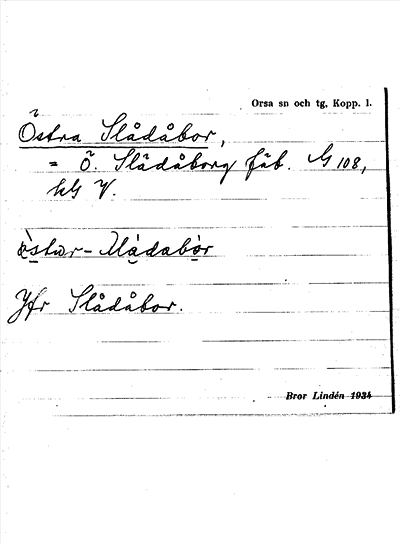 Orsa sn och tg, Kopp. l.
Östra Slådåbor,
= Ö. Slådåborg fäb. G 108,
hG V.
Jfr Slådåbor.
Bror Lindén 1934